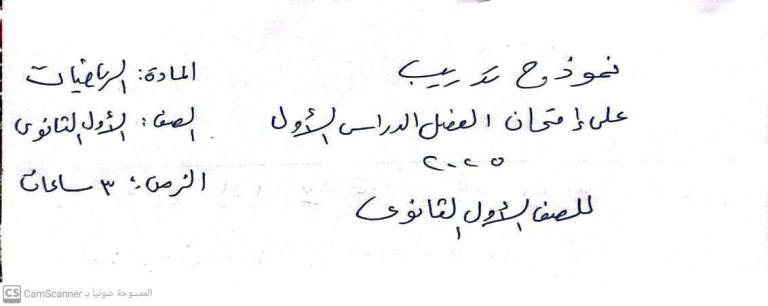 نموذج تدريب
على إمتحان الفصل الدراسى الأول
٢٠٢٥
للصف الأول الثانوى
المادة: الرياضيات
الصف: الأول الثانوى
الزمن: ٣ ساعات
CS CamScanner الممسوحة ضوئيا بـ